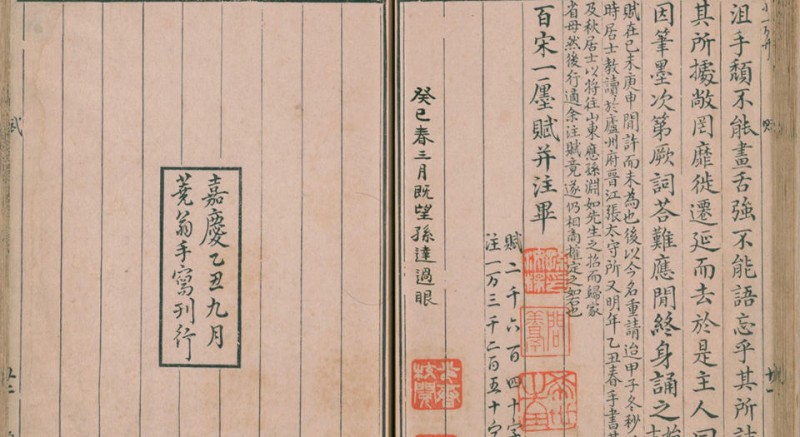 沮手顙不能畫舌強不能語忘乎其所
其所據敞罔靡徙遷延而去於是主人
因筆墨次第厥詞荅難應閒終身誦之
賦在己未庚申閒許而未為也後以今名重請迨甲子冬秒
時居士教讀於廬州府晉江張太守所又明年乙丑春手書
及秋居士以將往山東應孫淵如先生之招而歸家
省母然後行適余注賦竟遂仍相商榷定之如右也
百宋一廛賦并注畢
賦二千六百四十字
注一万三千二百五十字
癸巳春三月既望孫達過眼
嘉慶乙丑九月
蕘翁手寫刊行
賦